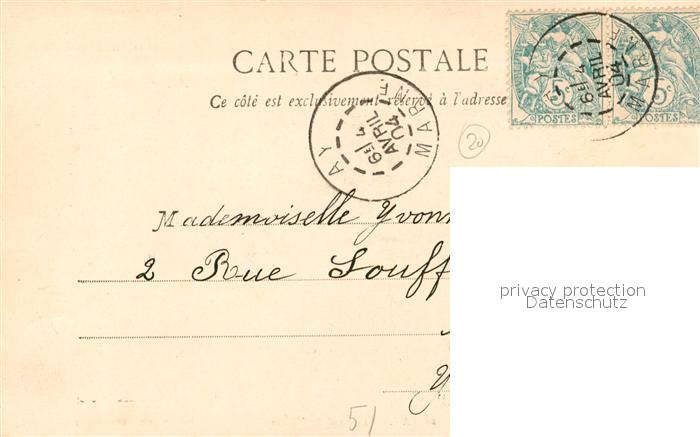 CARTE POSTALE
Ce côté est exclusivement réservé à l'adresse
AY MARNE
6E 4
AVRIL
04
6E 4
AVRIL
04
MARNE
5c 5c
POSTES POSTES
20
Mademoiselle Yvonn
2 Rue Souff
privacy protection
Datenschutz
Y
51